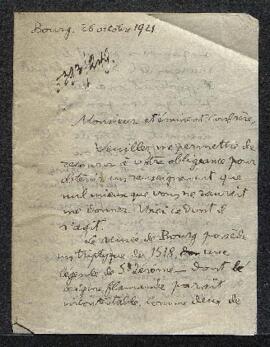 Bourg. 26 octobre 1921
Monsieur et éminent Confrère,
Veuillez me permettre de
recourir à votre obligeance pour
obtenir un renseignement que
nul mieux que vous ne saurait
me donner. Voici ce dont il
s'agit.
Le musée de Bourg possède
un triptyque de 1518, une
légende de St Jérome - dont
origine flamande paraît
incontestable, comme deux de